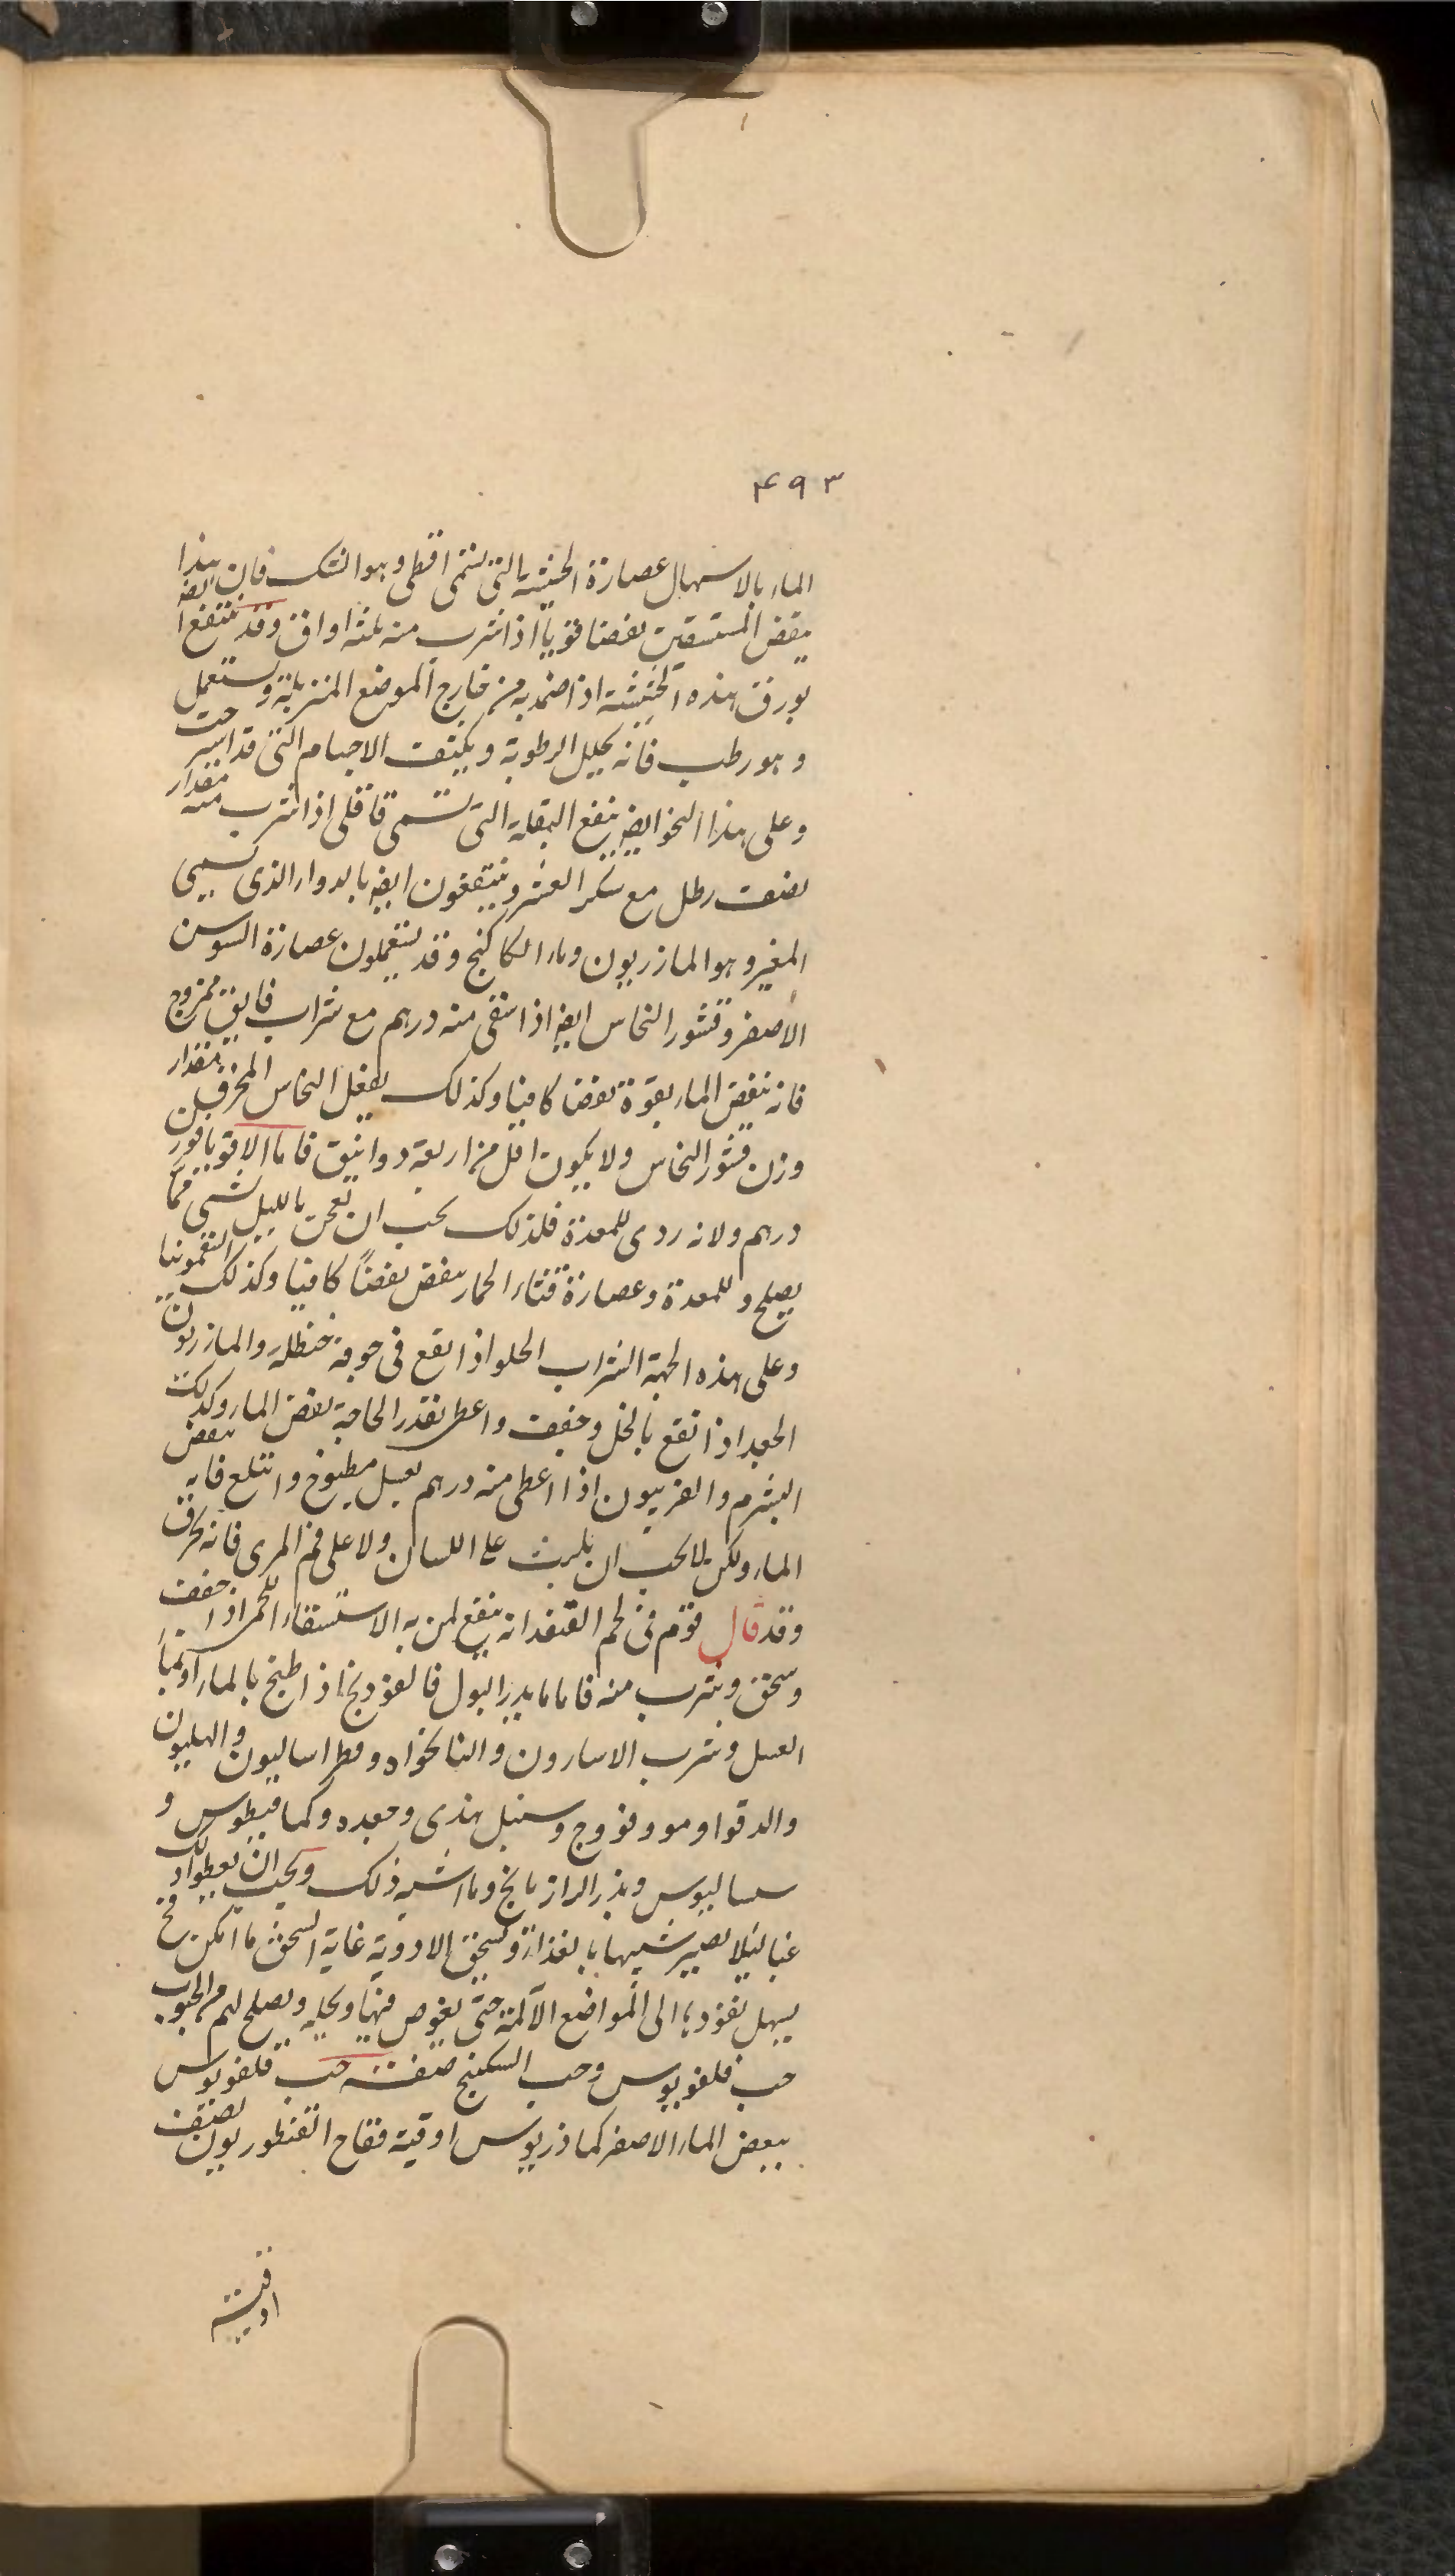 ٤٩٣
الماء بالاسهال عصارة الحشيشة التى تسمى اقطى وهو الشك فان هذا
ينفض المستسقين نفضا قويا اذا شرب منه ثلثة اواق وقد ينتفع ايضه
بورق هذه الحشيشة اذا ضمد به من خارج الموضع المنزبلة ويستعمل
وهو رطب فانه يحلل الرطوبة ويكيثف الاجسام التى قد استرحت
وعلى هذا النحو ايضه ينفع البقلة التى تسمى قاقلى اذا شرب منه مقدار
نصف رطل مع سكر العشر وينتفعون ايضه بالدواء الذى يسمى
المغير وهو المازريون وماء الكاكنج وقد يستعملون عصارة السوسن
الاصفر وقشور النحاس ايضه اذا اسقى منه درهم مع شراب فايق ممزوج
فانه ينفض الماء بقوة نفضا كافيا وكذلك يفعل النحاس المحرق مقدار
وزن قشور النحاس ولا يكون اقل من اربعة دوانيق فاما الاقويا فوزن
درهم ولانه ردى للمعدة فلذلك يجب ان يعجن بالليل شى مما
يصلح وللمعدة وعصارة قثاء الحمار ينفض نفضاً كافيا وكذلك السقمونيا
وعلى هذه الجهة الشراب الحلو اذا نقع فى جوفه حنظلة والمازريون
الجيد اذا نقع بالخل وجفف واعطى بقدر الحاجة نفض الماء وكذلك
الشبرم والفربيون اذا اعطى منه درهم بعسل مطبوخ وابتلع فانه ينفض
الماء ولكن لا يجب ان يلبث على اللسان ولا على فم المرى فانه يحرق
وقد قال قوم فى لحم القنفد انه ينفع لمن به الاستسقاء اللحمى اذا جفف
وسحق وشرب منه فاما ما يدر البول فالفودنج اذا طبخ بالماء او بماء
العسل وشرب الاسارون والنانخواه وفطراساليون والهليون
والدقوا ومو وفووج وسنبل هندى وجعده وكمافيطوس و
سساليوس وبذر الرازيانج وما اشبه ذلك ويجب ان يعطوا ذلك
غبا لئلا يصير شبيها بالغذاء وتسحق الادوية غاية السحق ما امكن فخ
يسهل نفوذها الى المواضع الآلمة حتى يغوص فيها ويحلله ويصلح لهم من الحبوب
حب فلغويوس وحب السكبنج صفة حب فلغويوس
ينفض الماء الاصفر كماذريوس اوقية فقاح القنطوريون نصف
اوقية